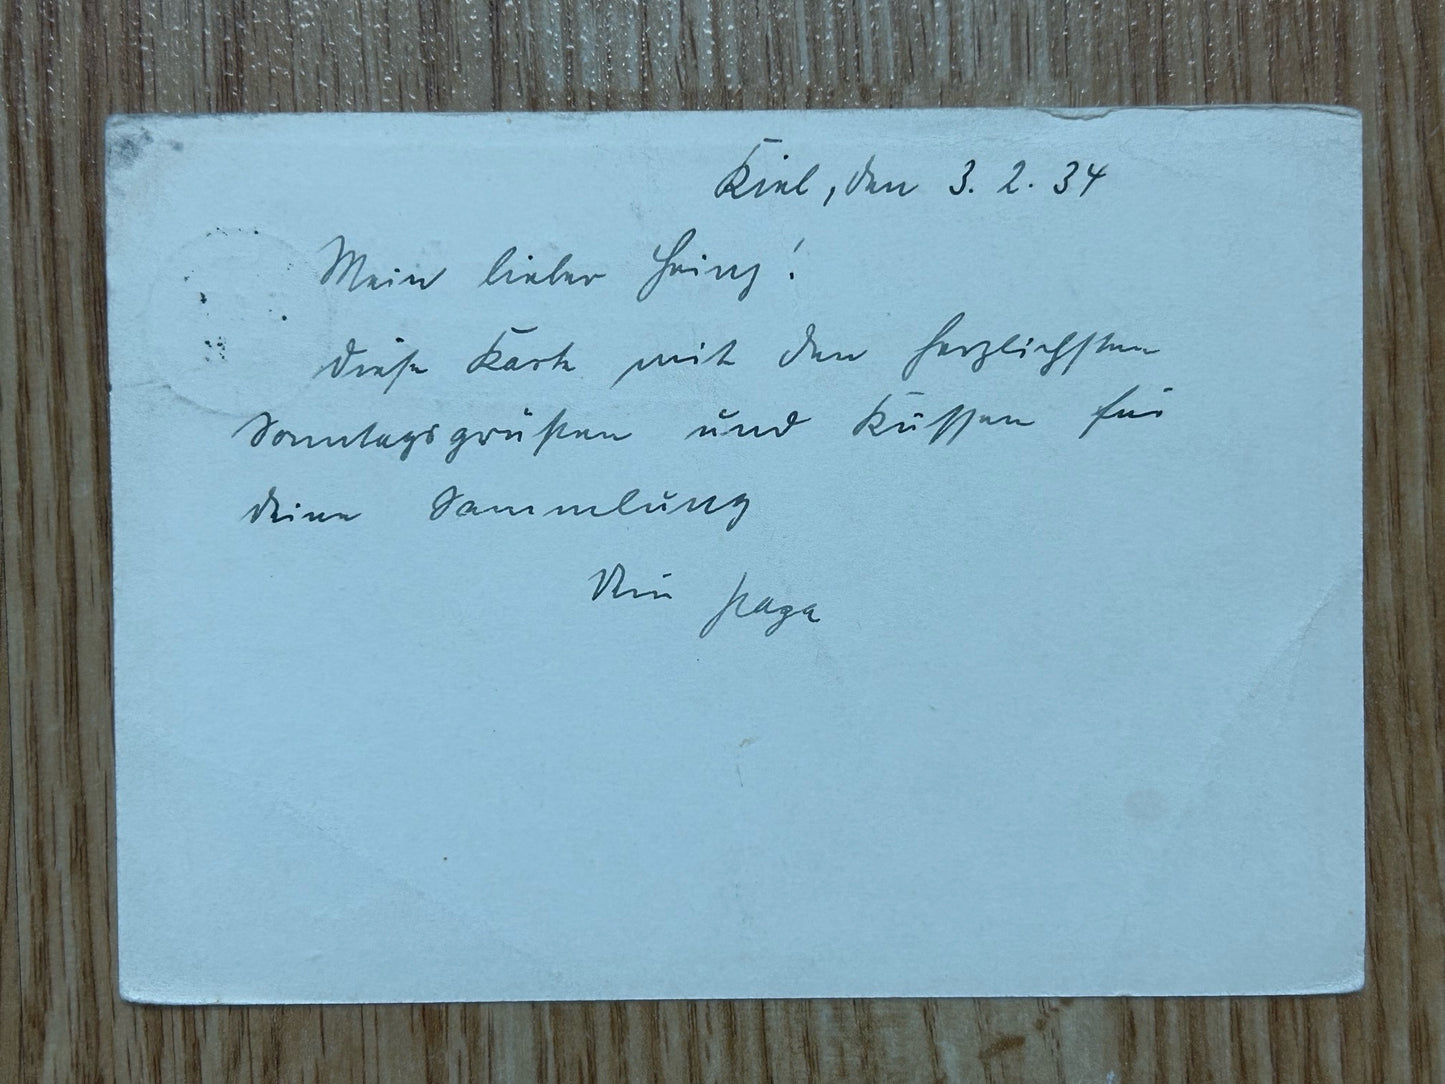 Kiel, den 3. 2. 34
Mein lieber Heinz!
Diese Karte mit den herzlichsten
Sonntagsgrüßen und Küssen für
Deine Sammlung
Dein Papa